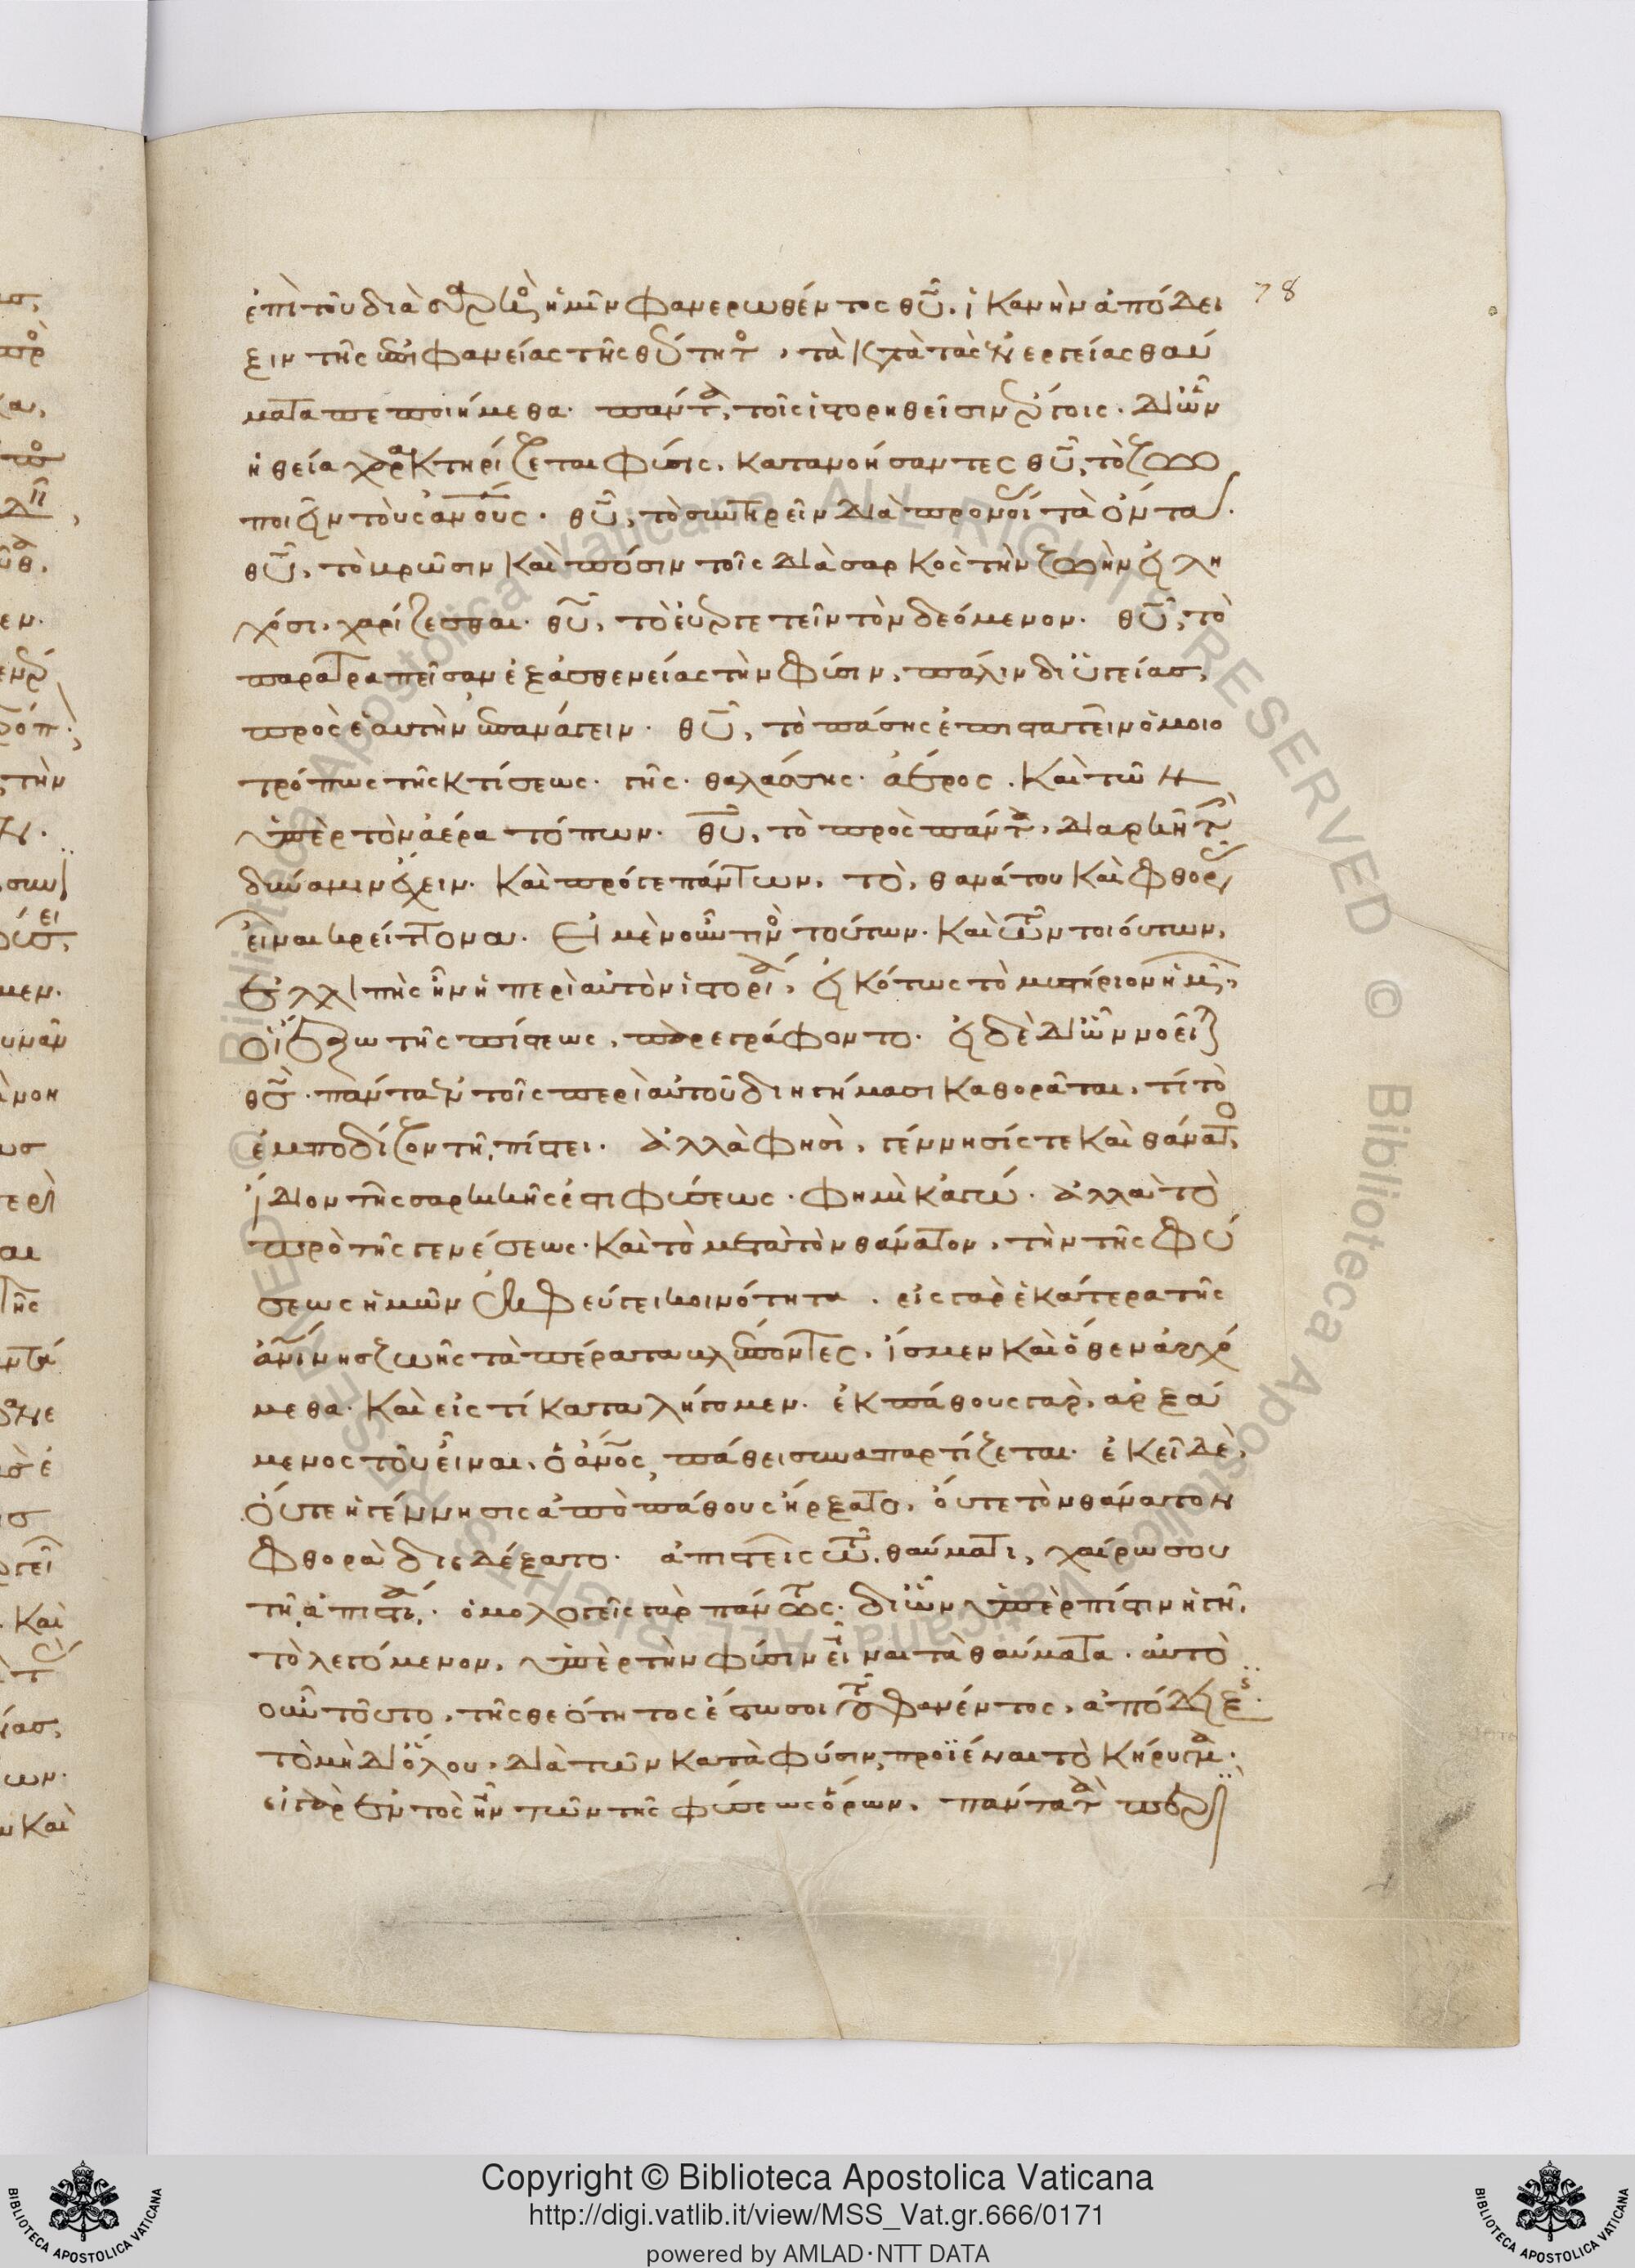 ἐπὶ τοῦ διὰ σαρκὸς ἡμῖν φανερωθέντος θυ, ἱκανὴν ἀπόδει
ξιν τῆς ἐπιφανείας τῆς θεότητος, τὰ κατὰ τὰς ἐνεργείας θαύ
ματα πεποιήμεθα. πάντα τοῖς ἱστορηθεῖσιν ἔργοις. δι' ὧν
ἡ θεία χαρακτηρίζεται φύσις, κατανοήσαντες θυ, τὸ ζωο
ποιεῖν τοὺς ἀνους. θυ, τὸ συντηρεῖν διὰ προνοίας τὰ ὄντα.
θυ, τὸ βρῶσιν καὶ πόσιν τοῖς διὰ σαρκὸς τὴν ζωὴν εἰλη
χόσι, χαρίζεσθαι. θυ, τὸ εὐεργετεῖν τὸν δεόμενον. θυ, τὸ
παρατραπεῖσαν ἐξ ἀσθενείας τὴν φύσιν, πάλιν δι' ὑγείας,
πρὸς ἑαυτὴν ἐπανάγειν. θυ, τὸ πάσης ἐπιστατεῖν ὁμοιο
τρόπως τῆς κτίσεως. γῆς. θαλάσσης. ἀέρος. καὶ τῶν
ὑπὲρ τὸν ἀέρα τόπων. θυ, τὸ πρὸς πάντα, διαρκῆ τὴν
δύναμιν ἔχειν. καὶ πρό γε πάντων, τὸ, θανάτου καὶ φθορᾶς
εἶναι κρείττονα. εἰ μὲν οὖν τινὸς τούτων. καὶ τῶν τοιούτων,
ἐλλιπὴς ἦν ἡ περὶ αὐτὸν ἱστορία, εἰκότως τὸ μυστήριον ἡμῶν,
οἱ ἔξω τῆς πίστεως, παρεγράφοντο. εἰ δὲ δι' ὧν νοεῖται
θς. πάντα ἐν τοῖς περὶ αὐτοῦ διηγήμασι καθορᾶται, τί τὸ
ἐμποδίζον τῇ πίστει. ἀλλὰ φησὶ, γέννησίς τε καὶ θάνατος,
ἴδιον τῆς σαρκικῆς ἐστι φύσεως. φημὶ κἀγώ. ἀλλὰ τὸ
πρὸ τῆς γενέσεως. καὶ τὸ μετὰ τὸν θάνατον, τὴν τῆς φύ
σεως ἡμῶν ἐκφεύγει κοινότητα. εἰς γὰρ ἑκάτερα τῆς
ἀνίνης ζωῆς τὰ πέρατα βλέποντες, ἴσμεν καὶ ὅθεν ἀρχό
μεθα. καὶ εἰς τί καταλήγομεν. ἐκ πάθους γὰρ, ἀρξά
μενος τοῦ εἶναι, ὁ ἀνος, πάθει συναπαρτίζεται. ἐκεῖ δὲ,
οὔτε ἡ γέννησις ἀπὸ πάθους ἤρξατο, οὔτε τὸν θάνατον
φθορὰ διεδέξατο. ἀπιστεῖς τῷ θαύματι, χαίρω σου
τῇ ἀπιστίᾳ. ὁμολογεῖς γὰρ πάντως. δι' ὧν ὑπὲρ πίστιν ἡγῇ,
τὸ λεγόμενον, ὑπὲρ τὴν φύσιν εἶναι τὰ θαύματα. αὐτὸ
οὖν τοῦτο, τῆς θεότητος ἔστω σοι τοῦ φανέντος, ἀπόδειξις.
τὸ μὴ δι' ὅλου, διὰ τῶν κατὰ φύσιν, προϊέναι τὸ κήρυγμα.
εἰ γὰρ ἐντὸς ἦν τῶν τῆς φύσεως ὅρων, πάντα τὰ περὶ
78
Copyright © Biblioteca Apostolica Vaticana
http://digi.vatlib.it/view/MSS_Vat.gr.666/0171
powered by AMLAD·NTT DATA